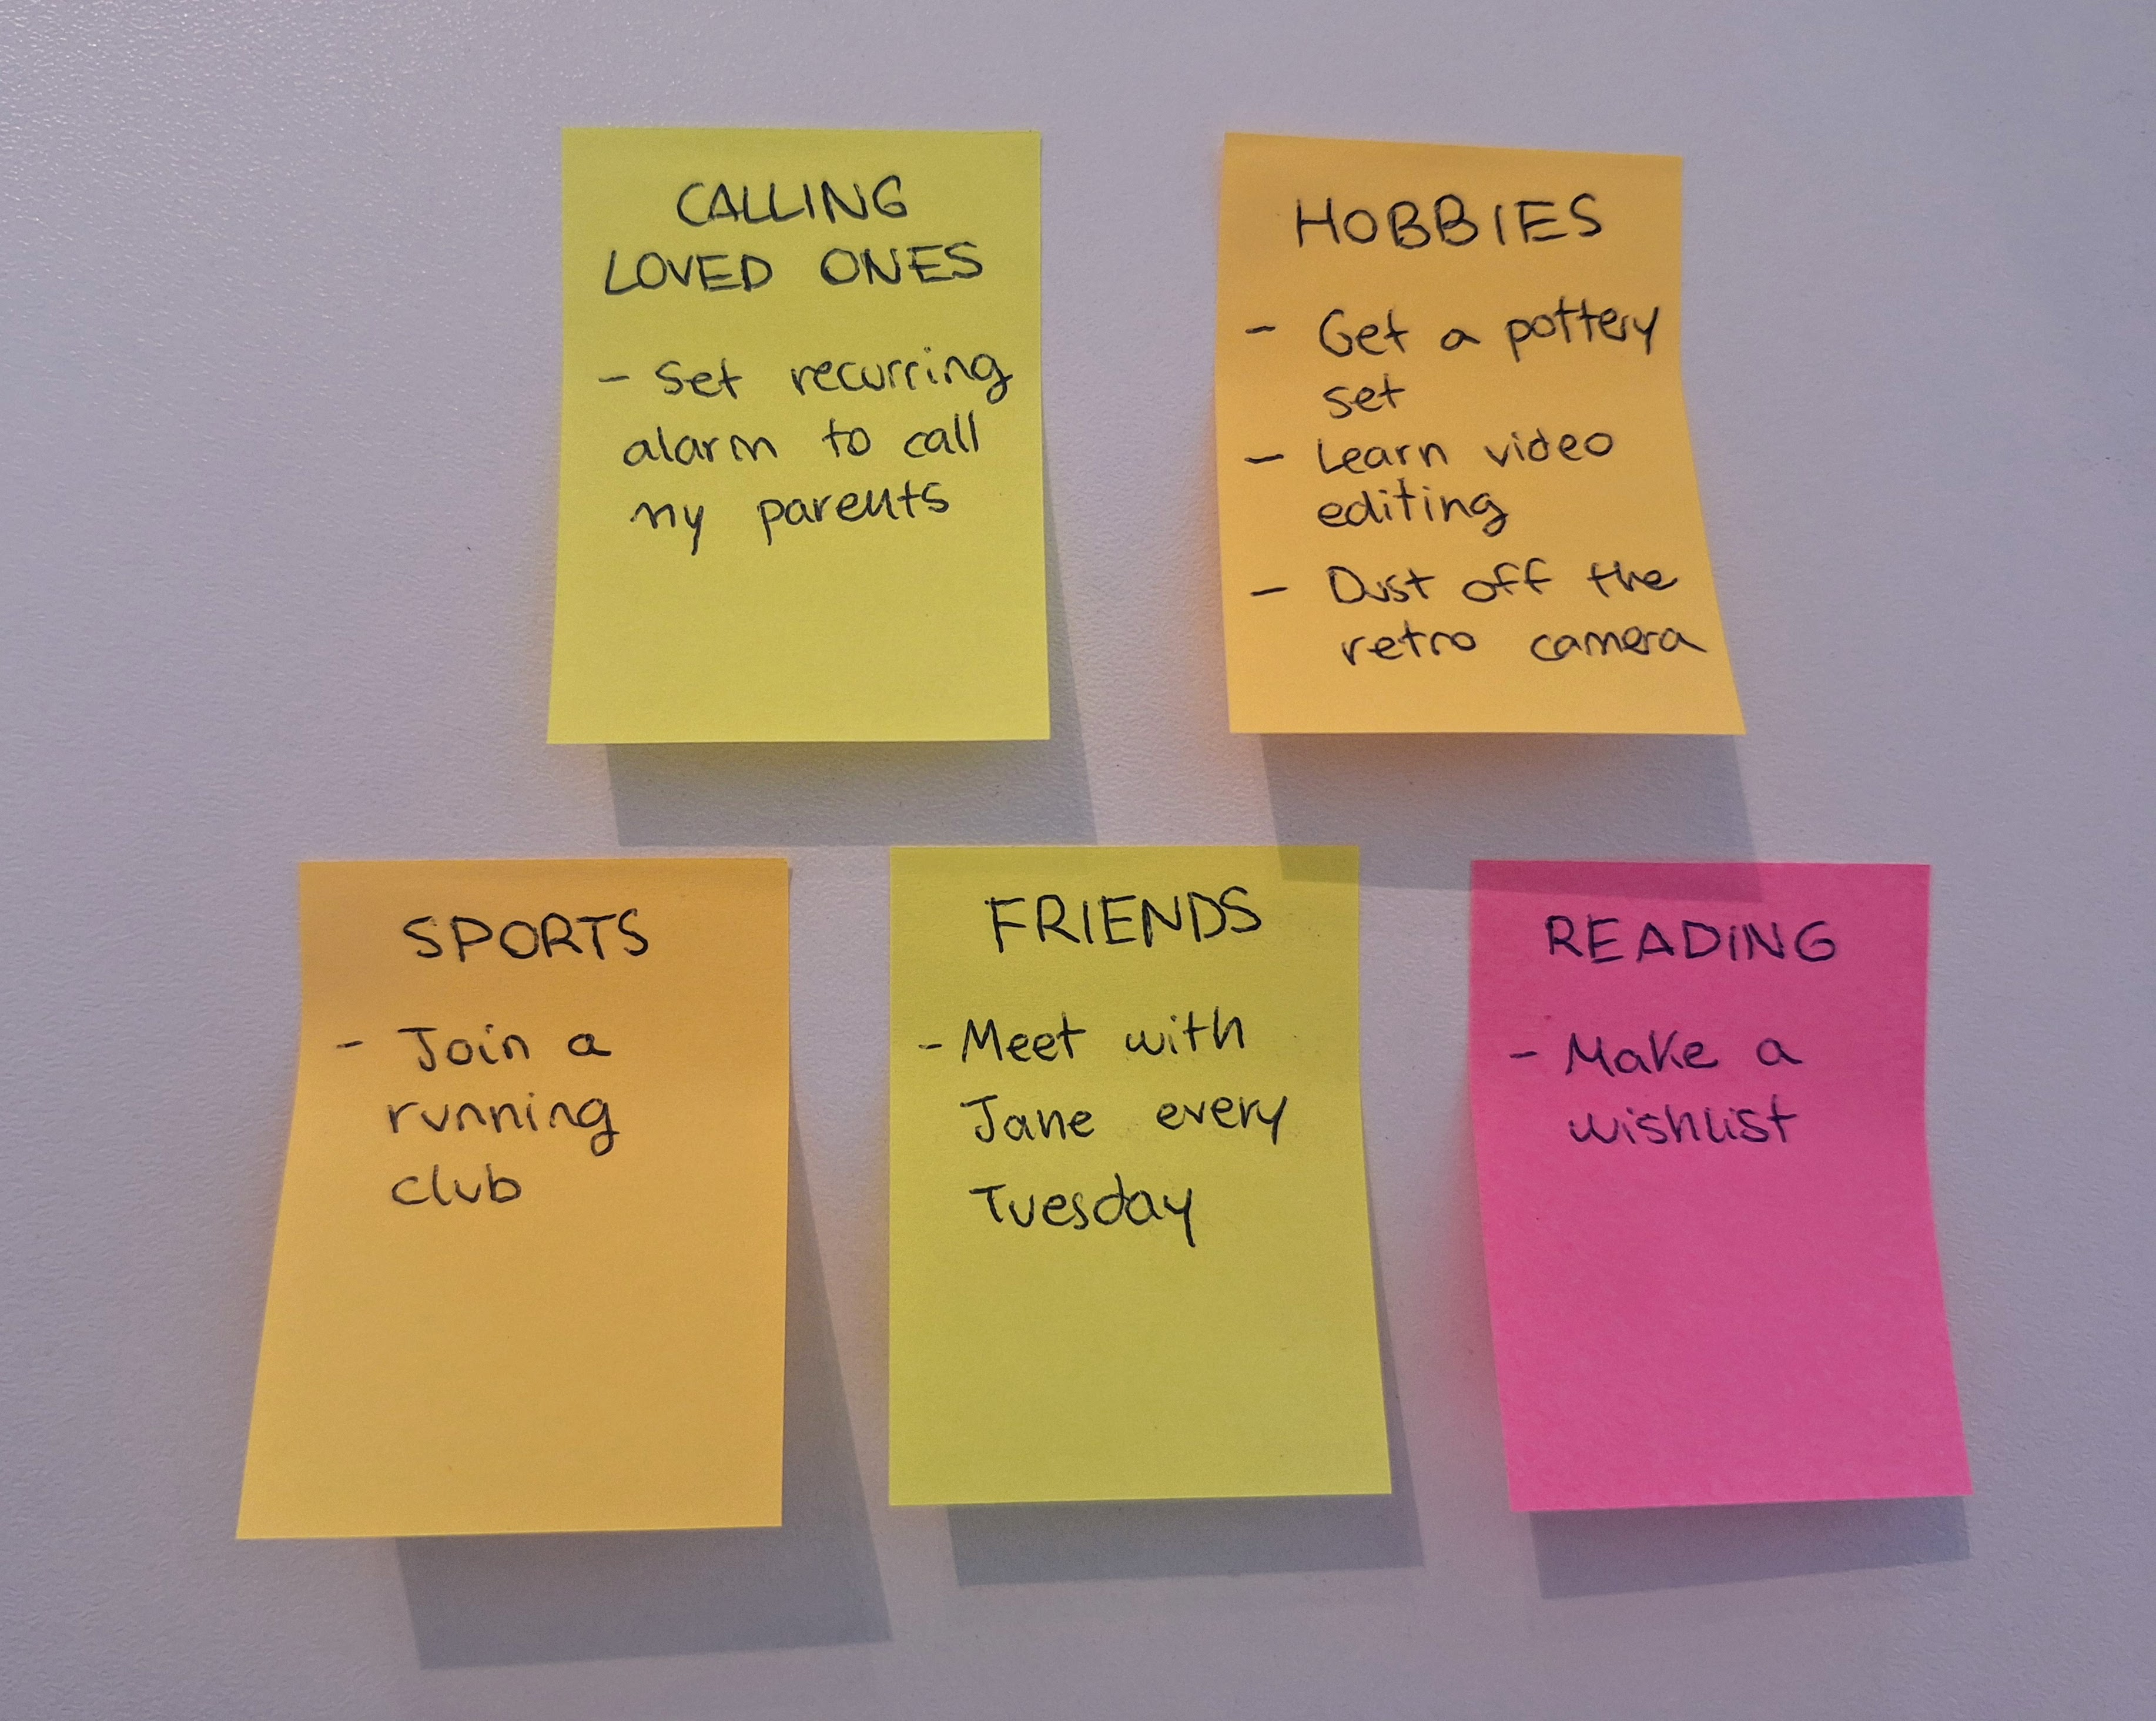 CALLING
LOVED ONES
- Set recurring
alarm to call
my parents
HOBBIES
- Get a pottery
set
- Learn video
editing
- Dust off the
retro camera
SPORTS
- Join a
running
club
FRIENDS
- Meet with
Jane every
Tuesday
READING
- Make a
wishlist